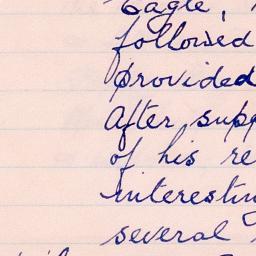 Eagle,
followed
provided
After supp
of his re
interestin
several